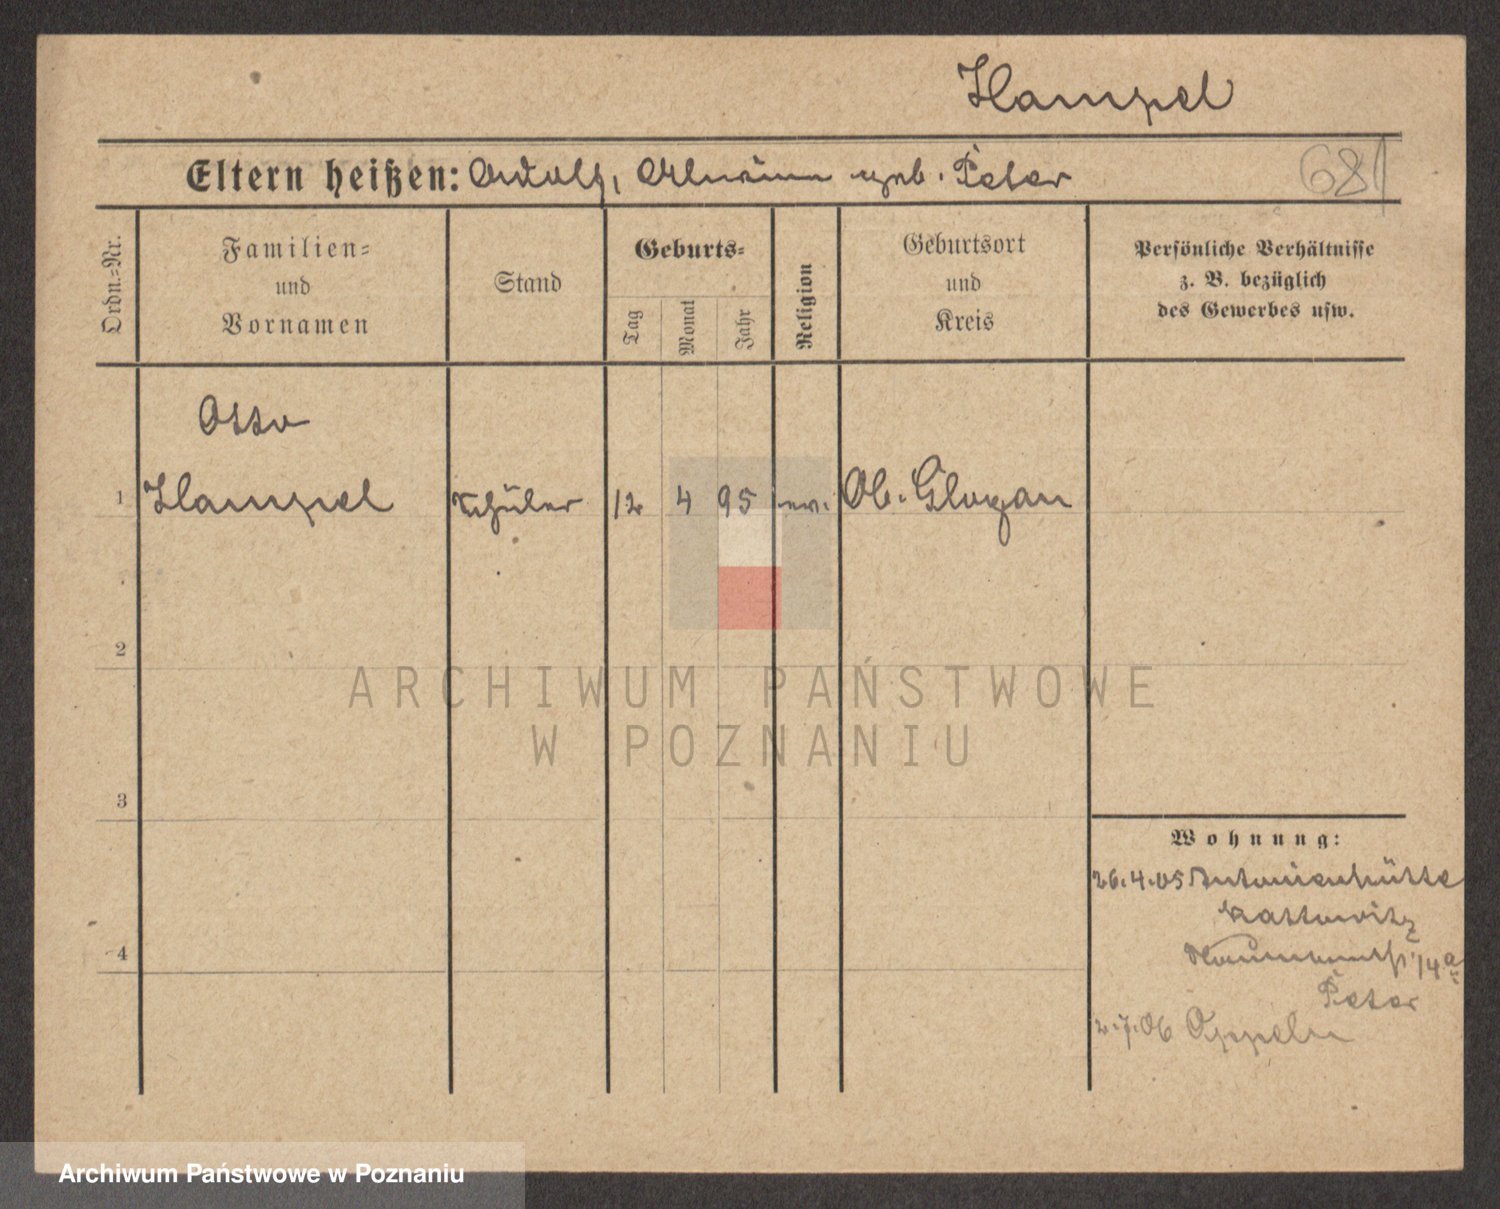 Hampel
Eltern heißen: Adolf, Alwine geb. Peter
681
Ordn.-Nr.
Familien-
und
Vornamen
Stand
Geburts-
Tag
Monat
Jahr
Religion
Geburtsort
und
Kreis
Persönliche Verhältnisse
z. B. bezüglich
des Gewerbes usw.
Otto
1 Hampel Schüler 12 4 95 ev. Ob. Glogau
2
ARCHIWUM PAŃSTWOWE
W POZNANIU
3
Wohnung:
26.4.05 Antonienhütte
Kattowitz
14a
Peter
4
2.7.06 Oppeln
Archiwum Państwowe w Poznaniu